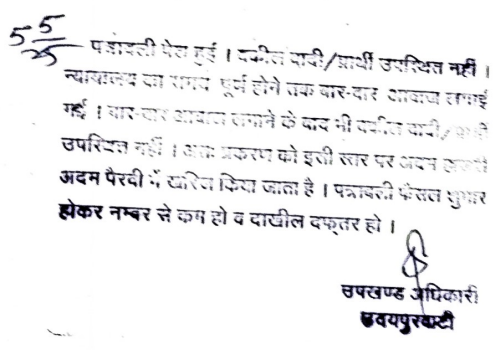 5 5/25
पत्रावली पेश हुई । वकील वादी/प्रार्थी उपस्थित नहीं ।
न्यायालय का समय पूर्ण होने तक बार-बार आवाज लगाई
गई । बार-बार आवाज लगाने के बाद भी वकील वादी/प्रार्थी
उपस्थित नहीं । अतः प्रकरण को इसी स्तर पर अदम हाजरी
अदम पैरवी में खारिज किया जाता है । पत्रावली फैसल शुमार
होकर नम्बर से कम हो व दाखील दफ्तर हो ।
उपखण्ड अधिकारी
उदयपुरवाटी